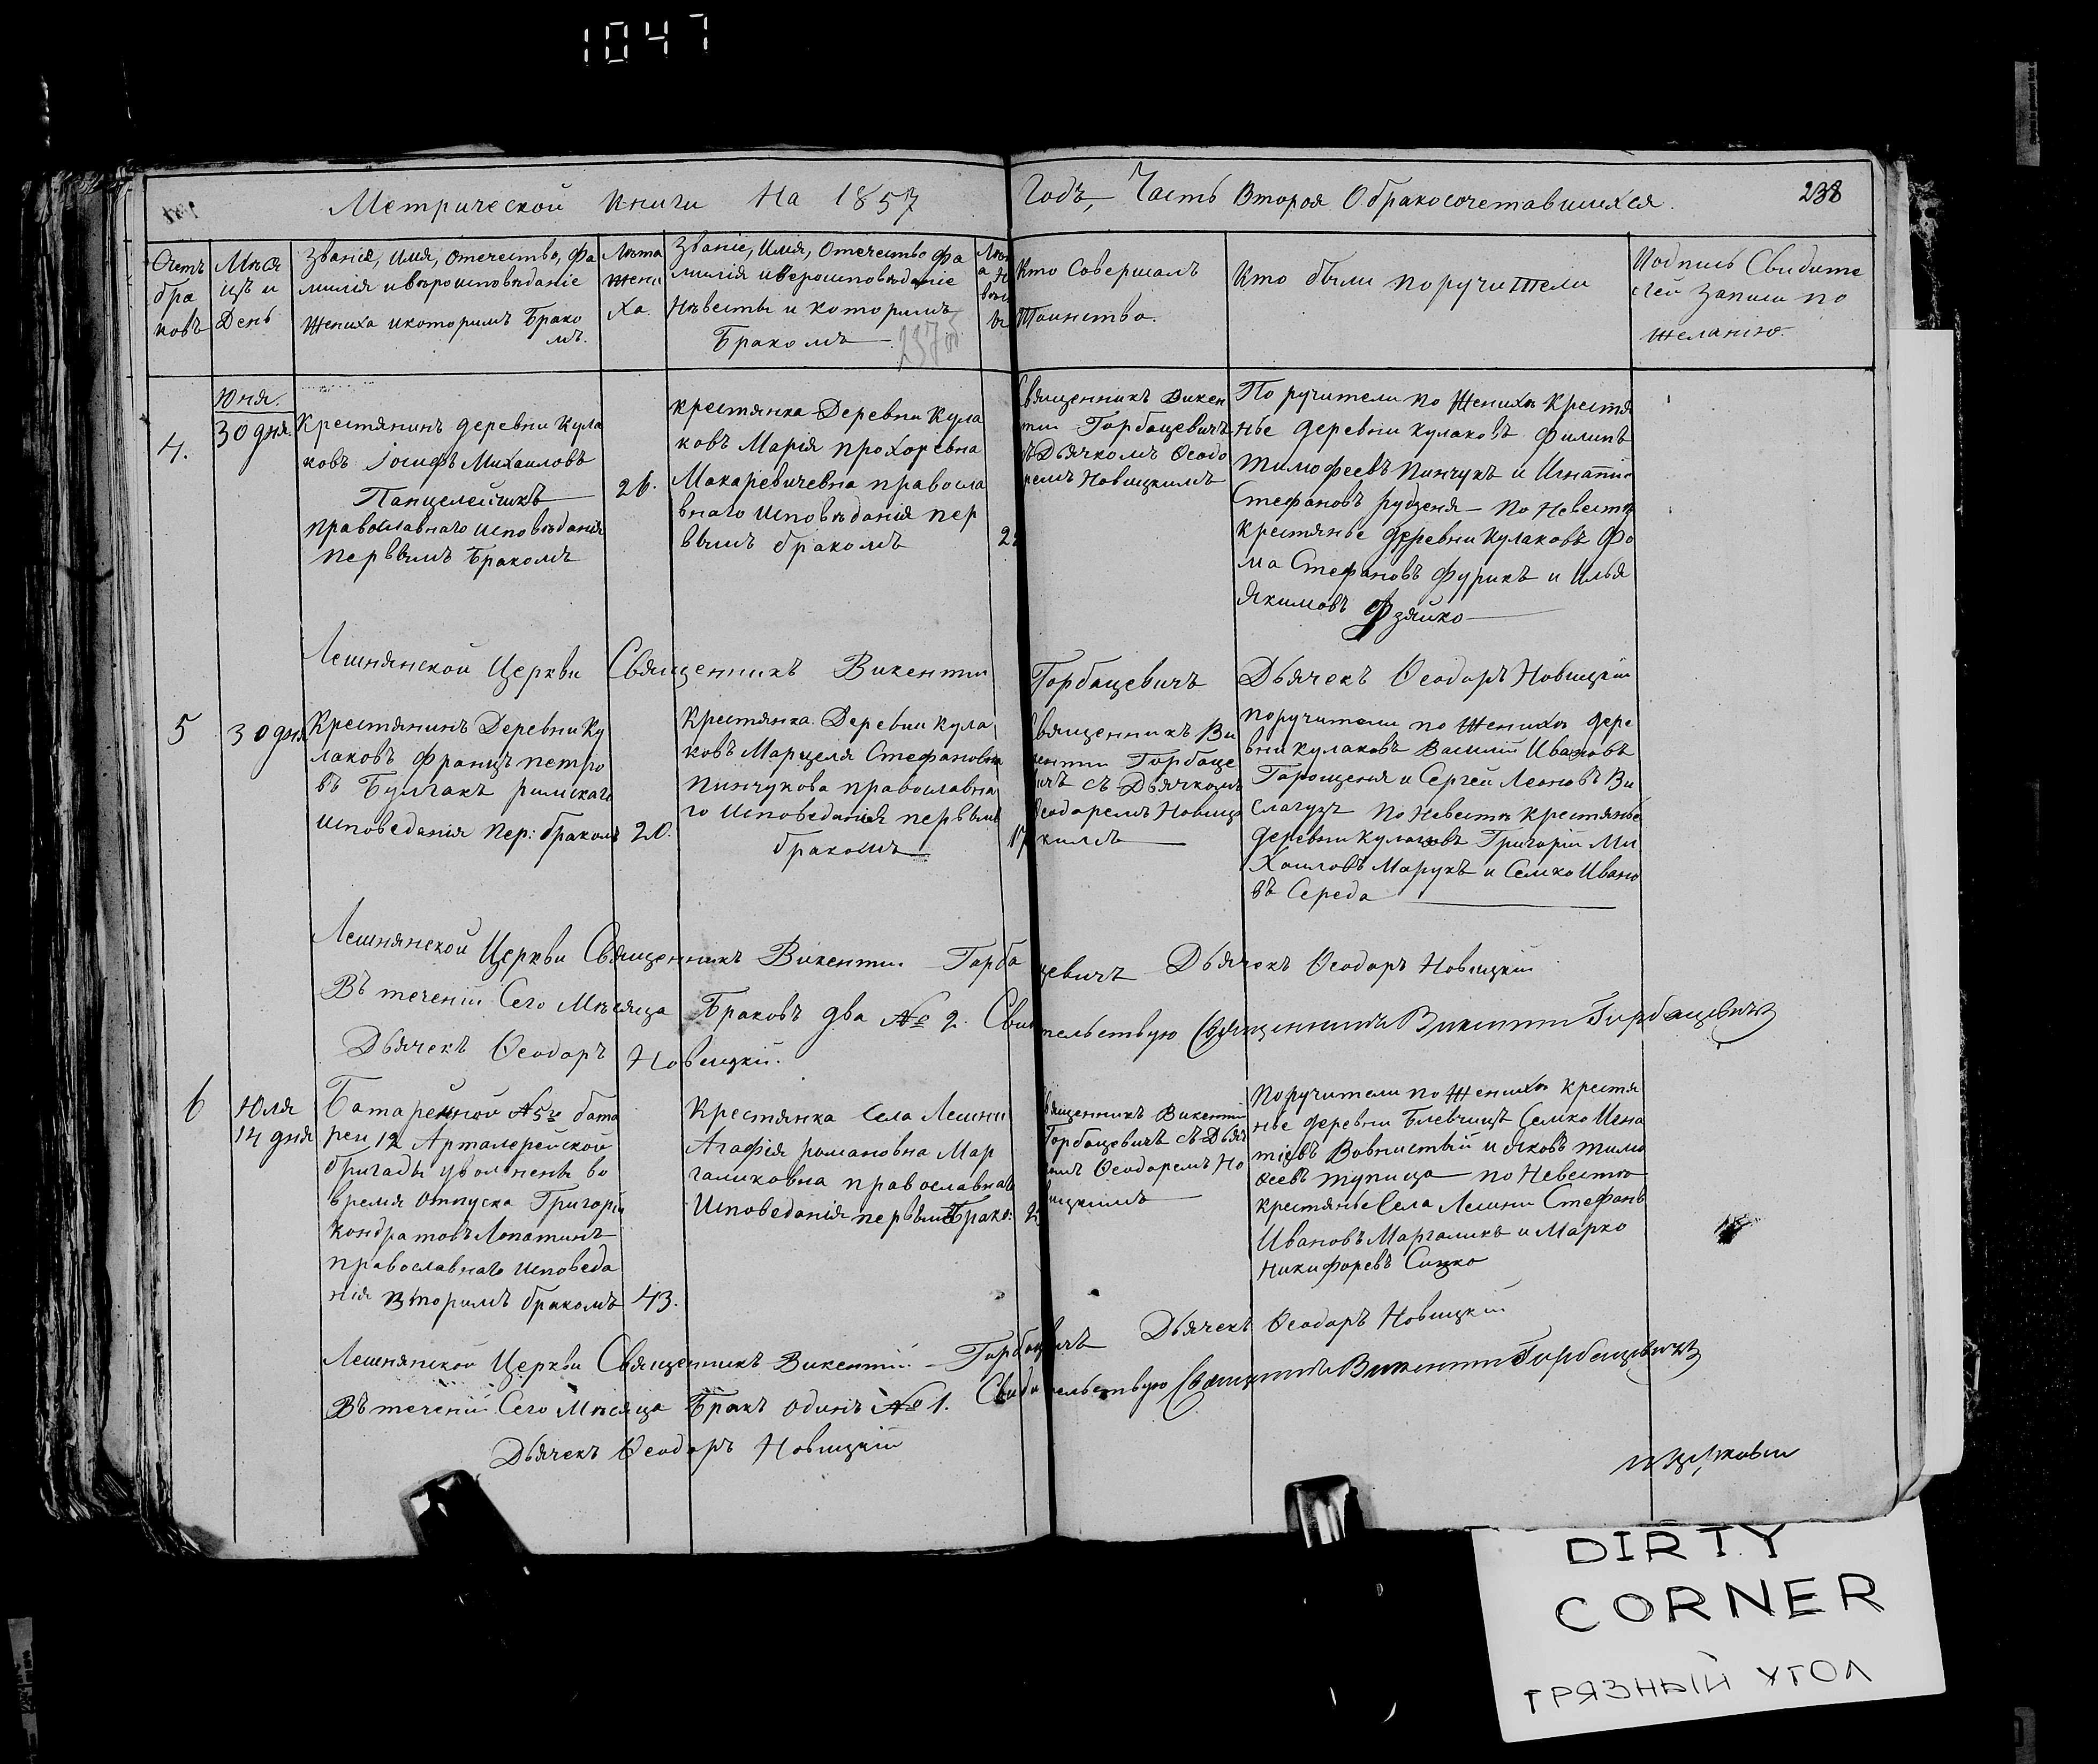 1047
Метрической книги на 1857 Годъ, Часть Вторая О бракосочетавшихся. 238
Счетъ
бра
ковъ
Мѣся
цъ и
День
Званіе, Имя, Отечество, Фа
милія и вѣроисповѣданіе
Жениха и которимъ Брако
мъ.
Лѣта
жени
ха.
Званіе, Имя, Отечество Фа
милія и вероисповѣданіе
Нѣвесты и которимъ
Бракомъ
237 об
Кто Совершалъ
Таинство.
Кто были поручители
Подпись Свидите
лей записи по
желанію.
4.
Юня.
30 дня.
Крестянинъ деревни Кула
ковъ Іосифъ Михаиловъ
Панцелейчикъ
православнаго исповѣданія
первымъ Бракомъ
26.
крестянка Деревни Кула
ковъ Марія Прохоревна
Макаревичевна правосла
внаго исповѣданія пер
вымъ бракомъ
Священникъ Викен
тіи Горбацевичъ
съ Дьячкомъ Ѳеодо
ремъ Новицкимъ
По ручители по Женихѣ Крестя
нье деревни Кулаковъ Филипъ
Тимофеевъ Пинчукъ и Игнатіи
Стефановъ Рудзеня — по Невестѣ
крестянье деревни Кулаковъ Фо
ма Стефановъ Фурикъ и Илья
Якимовъ Фзяйко
Лешнянской Церкви Священникъ Викентіи Горбацевичъ Дьячекъ Ѳеодоръ Новицкій
5
30 дня
Крестянинъ Деревни Ку
лаковъ Францъ Петро
въ Булгакъ римскаго
исповеданія пер: бракомъ
20.
Крестянка Деревни Кула
ковъ Марцеля Стефановна
Пинчукова православна
го Исповеданія первымъ
бракомъ
17
Священникъ Ви
кентіи Горбаце
вичъ съ Дьячкомъ
Ѳеодоремъ Новиц
кимъ
поручители по Женихѣ дере
вни Кулаковъ Василій Ивановъ
Горощеня и Сергей Леоновъ Ви
слагузъ по Невестѣ крестянье
деревни Кулаковъ Григорій Ми
хаиловъ Марукъ и Семко Ивано
въ Середа
Лешнянской Церкви Священникъ Викентіи Горбацевичъ Дьячекъ Ѳеодоръ Новицкій
Въ теченіи Сего Мѣсяца Браковъ два № 2. Свидетельствую Священникъ Викентіи Горбацевичъ
Дьячекъ Ѳеодоръ Новицкій.
6
Юля
14 дня
Батарейной №5й бата
реи 12 Арталерейской
бригады уволненъ во
время отпуска Григорій
Кондратовъ Лопатинъ
православнаго исповеда
нія Вторимъ бракомъ
43.
Крестянка Села Лешни
Агафія романовна Мар
галиковна православнаго
Исповеданія первымъ Брако:
Священникъ Викентій
Горбацевичъ съ Дьяч
комъ Ѳеодоремъ Но
вицкимъ
Поручители по Женихѣ крестя
нье деревни Блевчицъ Семко Игна
тіевъ Вовнистый и Яковъ Тимо
ѳеевъ Тупица — по Невестѣ
крестянье Села Лешни Стефанъ
Ивановъ Маргаликъ и Марко
Никифоревъ Сицко
Лешнянской Церкви Священникъ Викентій Горбацевичъ Дьячекъ Ѳеодоръ Новицкій
Въ теченіи Сего Мѣсяца Бракъ одинъ № 1. Свидетельствую Священникъ Викентіи Горбацевичъ
Дьячекъ Ѳеодоръ Новицкій
DIRTY
CORNER
ГРЯЗНЫЙ УГОЛ